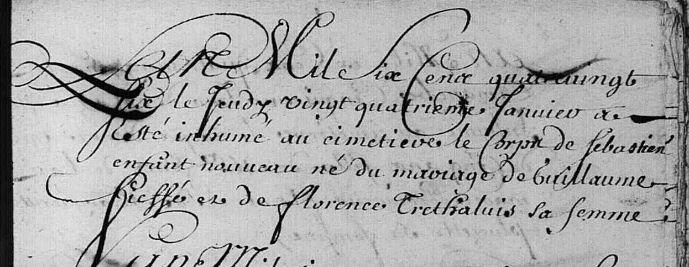 L'an Mil Six Cens quatrevingt
six le Jeudy vingt quatrieme Janvier a
esté inhumé au cimetiere le Corps de Sebastien
enfant nouveau né du mariage de Guillaume
et de Florence sa femme
L'an Mil